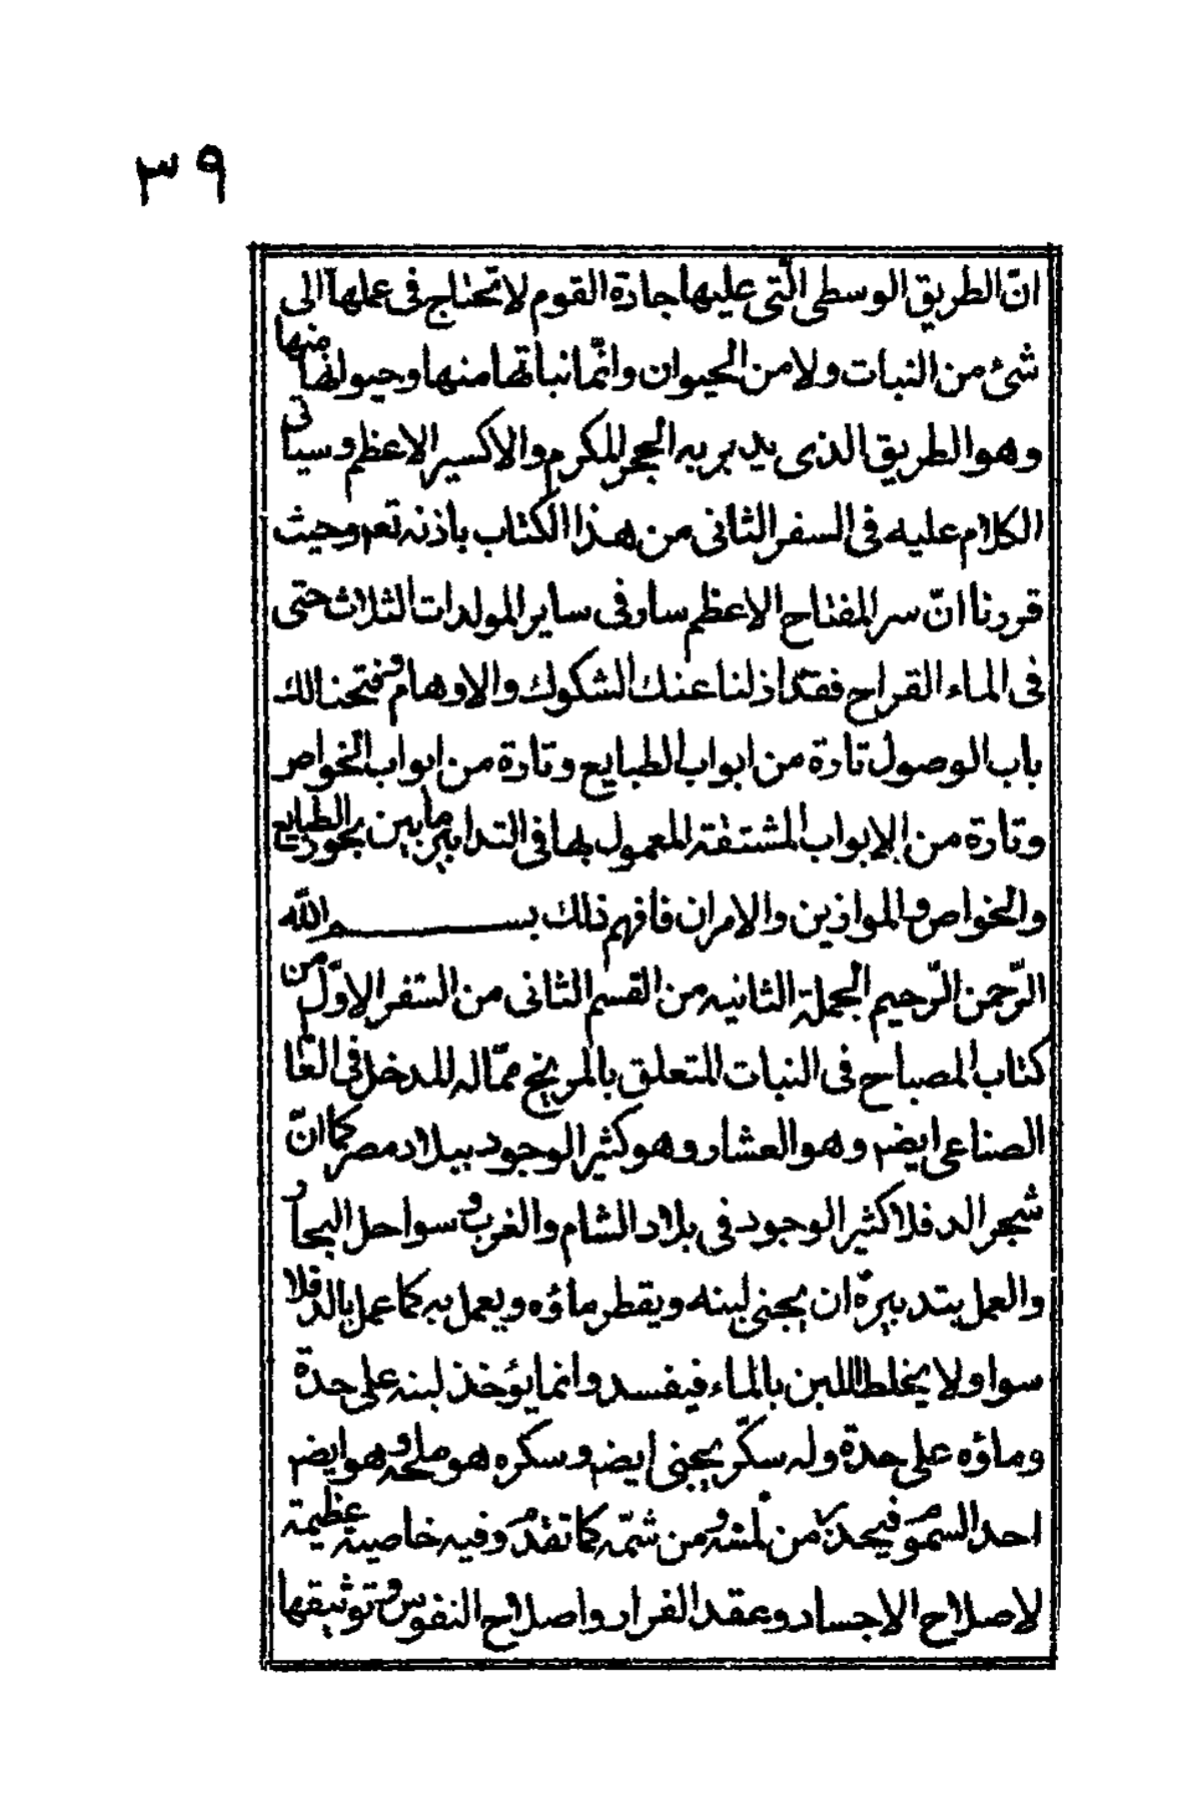 ٣٩
انّ الطريق الوسطى الّتى عليها جادة القوم لا تحتاج فى عملها الى
شئ من النبات ولا من الحيوان وانّما نباتها منها وحيوانها منها
وهو الطريق الذى يدبر به الحجر المكرم والاكسير الاعظم وسياتى
الكلام عليه فى السفر الثانى من هذا الكتاب باذنه تعم وحيث
قررنا انّ سر المفتاح الاعظم سار فى ساير المولدات الثلاث حتى
فى الماء القراح فقد ازلنا عنك الشكوك والاوهام وفتحنا لك
باب الوصول تارة من ابواب الطبايع وتارة من ابواب الخواص
وتارة من الابواب المشتقة المعمول بها فى التدابير ما بين بخود الطبايع
والخواص والموازين والامران فافهم ذلك بسم الله
الرّحمن الرّحيم الجملة الثانيه من القسم الثانى من السّفر الاوّل من
كتاب المصباح فى النبات المتعلق بالمريخ ممّا له المدخل فى العا
الصناعى ايضم وهو العشار وهو كثير الوجود ببلاد مصر كما انّ
شجر الدفلا كثير الوجود فى بلاد الشام والغرب وسواحل البحار
والعمل بتدبيره ان يجنى لبنه ويقطر ماؤه ويعمل به كما عمل بالدفلا
سوا ولا يخلط اللبن بالماء فيفسد وانما يؤخذ لبنه على حدة
وماؤه على حدة وله سكّر يجنى ايضم وسكره هو ملحه وهو ايضم
احد السموم فيحذر من لمسه ومن شمّه كما تقدم وفيه خاصية عظيمة
لاصلاح الاجساد وعقد الفرار واصلاح النفوس وتوثيقها